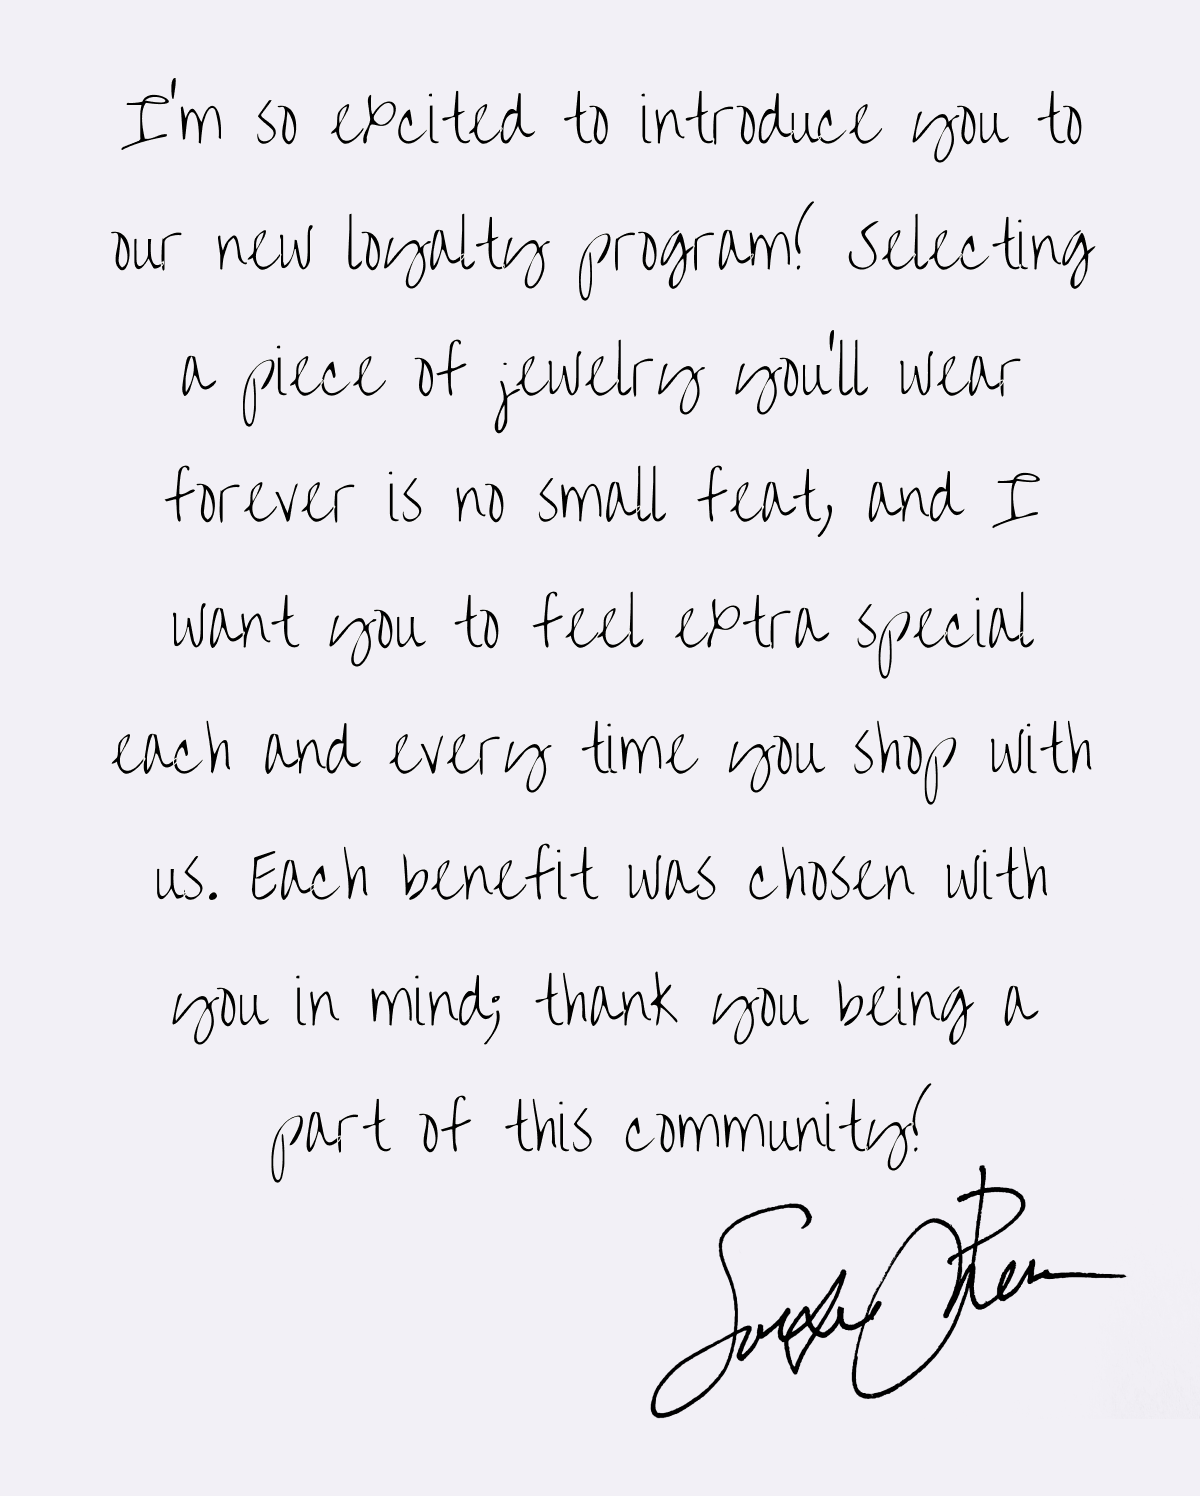 I'm so excited to introduce you to
our new loyalty program! Selecting
a piece of jewelry you'll wear
forever is no small feat, and I
want you to feel extra special
each and every time you shop with
us. Each benefit was chosen with
you in mind; thank you being a
part of this community!